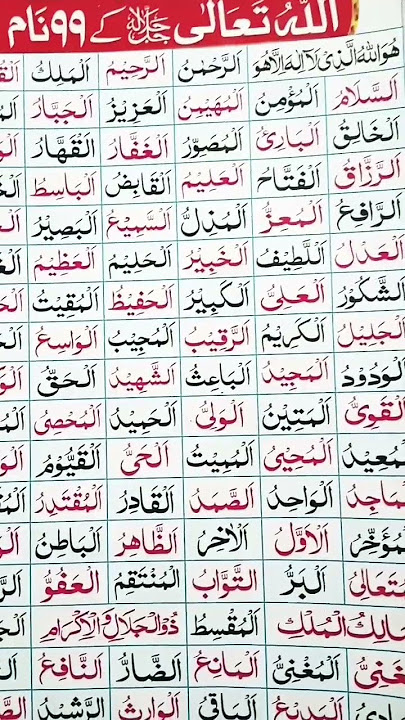 اللہ تعالٰی جل جلالہ کے ۹۹ نام
هُوَ اللّٰهُ الَّذِیْ لَآ اِلٰهَ اِلَّا هُوَ اَلرَّحْمٰنُ اَلرَّحِیْمُ اَلْمَلِكُ
اَلسَّلَامُ اَلْمُؤْمِنُ اَلْمُهَیْمِنُ اَلْعَزِیْزُ اَلْجَبَّارُ
اَلْخَالِقُ اَلْبَارِئُ اَلْمُصَوِّرُ اَلْغَفَّارُ اَلْقَهَّارُ
اَلرَّزَّاقُ اَلْفَتَّاحُ اَلْعَلِیْمُ اَلْقَابِضُ اَلْبَاسِطُ
اَلرَّافِعُ اَلْمُعِزُّ اَلْمُذِلُّ اَلسَّمِیْعُ اَلْبَصِیْرُ
اَلْعَدْلُ اَللَّطِیْفُ اَلْخَبِیْرُ اَلْحَلِیْمُ اَلْعَظِیْمُ
اَلشَّكُوْرُ اَلْعَلِیُّ اَلْكَبِیْرُ اَلْحَفِیْظُ اَلْمُقِیْتُ
اَلْجَلِیْلُ اَلْكَرِیْمُ اَلرَّقِیْبُ اَلْمُجِیْبُ اَلْوَاسِعُ
اَلْوَدُوْدُ اَلْمَجِیْدُ اَلْبَاعِثُ اَلشَّهِیْدُ اَلْحَقُّ
اَلْقَوِیُّ اَلْمَتِیْنُ اَلْوَلِیُّ اَلْحَمِیْدُ اَلْمُحْصِیُ
مُعِیْدُ اَلْمُحْیِیُ اَلْمُمِیْتُ اَلْحَیُّ اَلْقَیُّوْمُ
مَاجِدُ اَلْوَاحِدُ اَلصَّمَدُ اَلْقَادِرُ اَلْمُقْتَدِرُ
مُؤَخِّرُ اَلْاَوَّلُ اَلْاٰخِرُ اَلظَّاهِرُ اَلْبَاطِنُ
مُتَعَالِیُ اَلْبَرُّ اَلتَّوَّابُ اَلْمُنْتَقِمُ اَلْعَفُوُّ
مَالِكُ الْمُلْكِ اَلْمُقْسِطُ ذُوالْجَلَالِ وَالْاِكْرَامِ
غَنِیُّ اَلْمُغْنِیُ اَلْمَانِعُ اَلضَّارُّ اَلنَّافِعُ
اَلْبَدِیْعُ اَلْبَاقِی اَلْوَارِثُ اَلرَّشِیْدُ